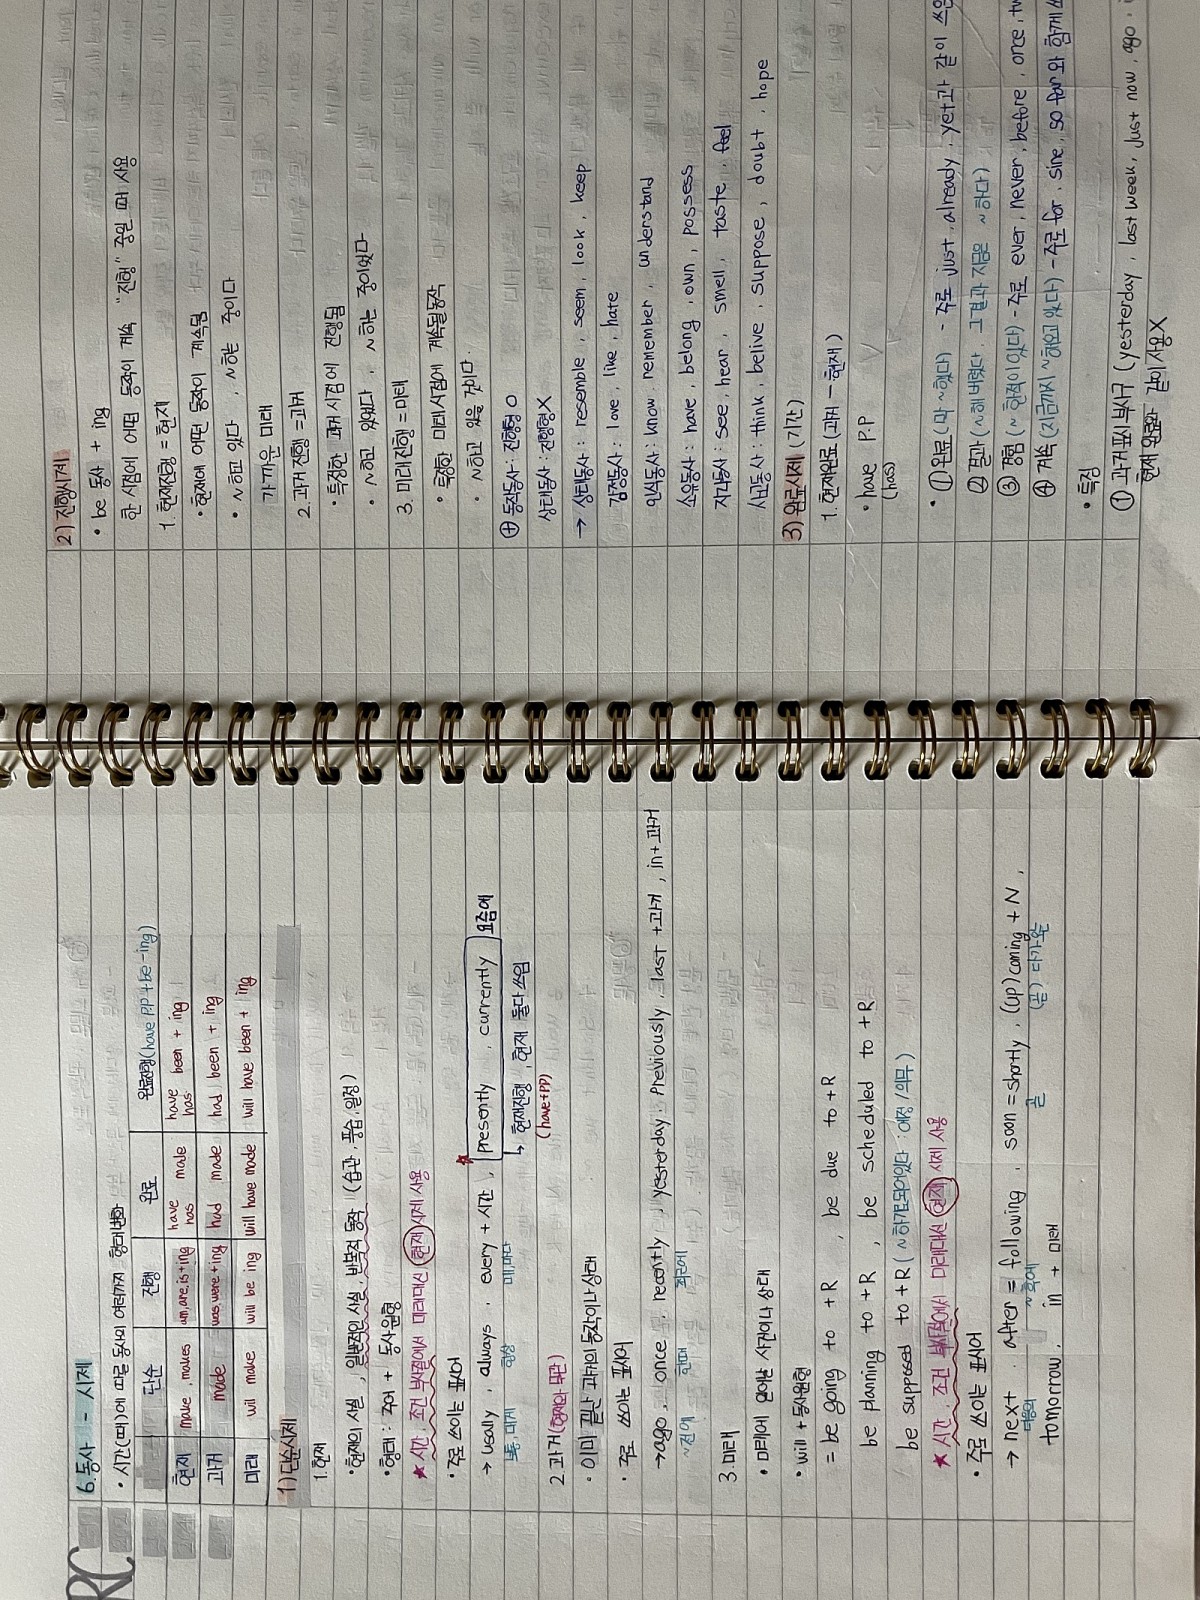 RC
6. 동사 - 시제
• 시간(때)에 따른 동사의 여러가지 형태변화
단순 진행 완료 완료진행(have P.P + be -ing)
현재 make, makes am,are,is+ing have has made have has been + ing
과거 made was,were+ing had made had been + ing
미래 will make will be ing will have made will have been + ing
1) 단순시제
1. 현재
• 현재의 사실, 일반적인 사실, 반복적 동작 (습관, 풍습, 일정)
• 형태 : 주어 + 동사원형
★ 시간, 조건 부사절에서 미래대신 현재 시제 사용
• 주로 쓰이는 표시어
→ usally, always, every + 시간, ★ presently, currently 요즘에
보통, 대게 항상 매,마다 ↳ 현재진행, 현재 둘다 쓰임
(have+PP)
2 과거(현재와 무관)
• 이미 끝난 과거의 동작이나 상태
• 주로 쓰이는 표시어
→ago, once, recently, yesterday, Previously, last +과거, in+과거
~전에 한때 최근에
3. 미래
• 미래에 일어날 사건이나 상태
• will + 동사원형
= be going to + R, be due to + R
be planning to + R, be scheduled to + R
be supposed to + R ( ~하기로되어있다 : 예정 / 의무 )
★ 시간, 조건 부사절에서 미래대신 현재 시제 사용
• 주로 쓰이는 표시어
→ next, after = following, soon = shortly, (up)coming + N,
다음의 ~후에 곧 (곧) 다가오는
tomorrow, in + 미래
2) 진행시제
• be 동사 + ing
한 시점에 어떤 동작이 계속 "진행" 중일 때 사용
1. 현재진행 = 현재
• 현재에 어떤 동작이 계속됨
• ~하고 있다, ~하는 중이다
가까운 미래
2. 과거진행 =과거
• 특정한 과거 시점에 진행됨
• ~하고 있었다, ~하는 중이었다
3. 미래진행 = 미래
• 특정한 미래시점에 계속될동작
• ~하고 있을 것이다.
⊕ 동작동사 : 진행형 O
상태동사 : 진행형 X
→ 상태동사 : resemble, seem, look, keep
감정동사 : love, like, hate
인식동사 : know, remember, understand
소유동사 : have, belong, own, possess
지각동사 : see, hear, smell, taste, feel
사고동사 : think, belive, suppose, doubt, hope
3) 완료시제 (기간)
1. 현재완료 (과거 - 현재)
• have P.P
(has)
• ① 완료 (막 ~했다) - 주로 just, already, yet과 같이 쓰
② 결과 (~해 버렸다. 그 결과 지금은 ~하다)
③ 경험 (~한적이 있다) - 주로 ever, never, before, once, tw
④ 계속 (지금까지 ~해오고 있다) - 주로 for, sine, so far 와 함께
• 특징
① 과거표시 부사구 (yesterday, last week, just now, ago
현재완료와 같이 사용X